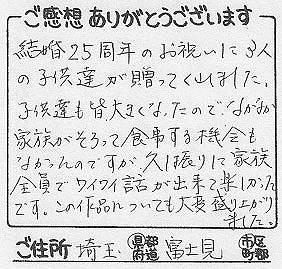 ご感想 ありがとうございます
結婚25周年のお祝いに3人
の子供達が贈ってくれました。
子供達も皆大きくなったので、なかなか
家族がそろって食事する機会も
なかったのですが、久し振りに家族
全員でワイワイ話が出来て楽しかった
です。この作品についても大変盛り上がり
ました。
ご住所 埼玉 都道府県 富士見 市区町郡